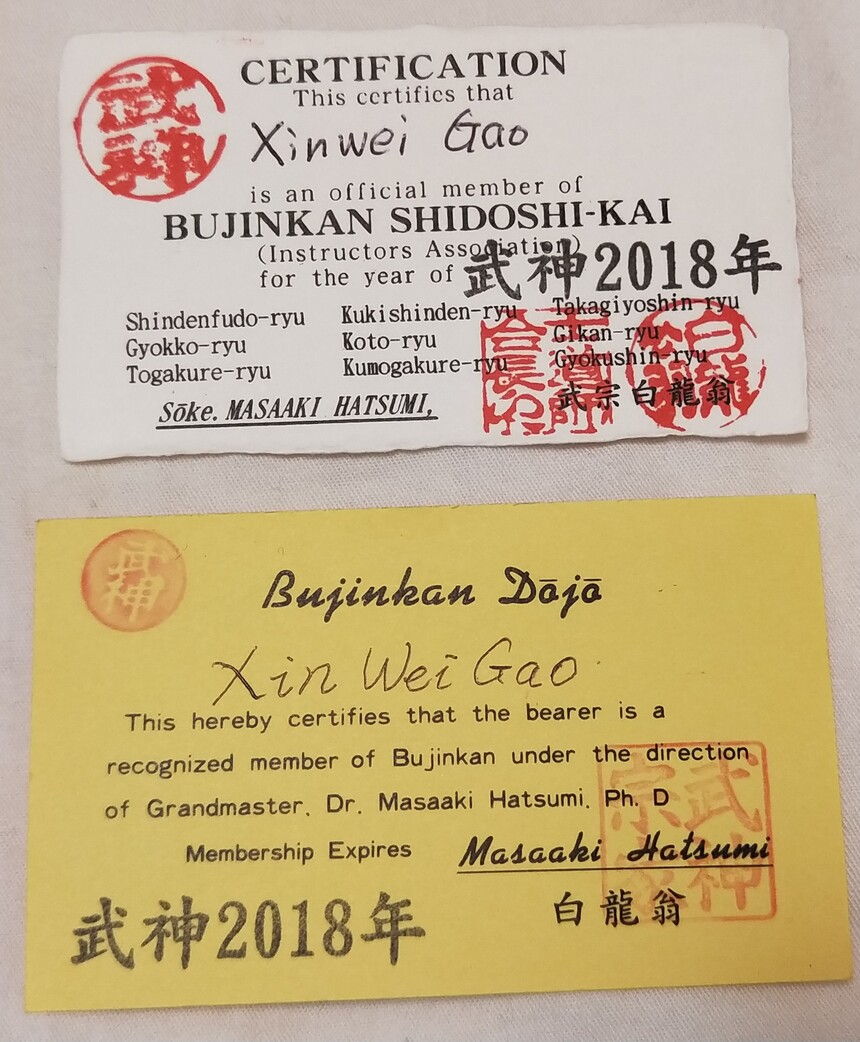 武神
CERTIFICATION
This certifies that
Xinwei Gao
is an official member of
BUJINKAN SHIDOSHI-KAI
(Instructors Association)
for the year of 武神2018年
Shindenfudo-ryu Kukishinden-ryu Takagiyoshin-ryu
Gyokko-ryu Koto-ryu Gikan-ryu
Togakure-ryu Kumogakure-ryu Gyokushin-ryu
武宗白龍翁
Sōke. MASAAKI HATSUMI,
Bujinkan Dōjō
Xin Wei Gao
This hereby certifies that the bearer is a
recognized member of Bujinkan under the direction
of Grandmaster, Dr. Masaaki Hatsumi, Ph. D
Membership Expires Masaaki Hatsumi
武神2018年 白龍翁